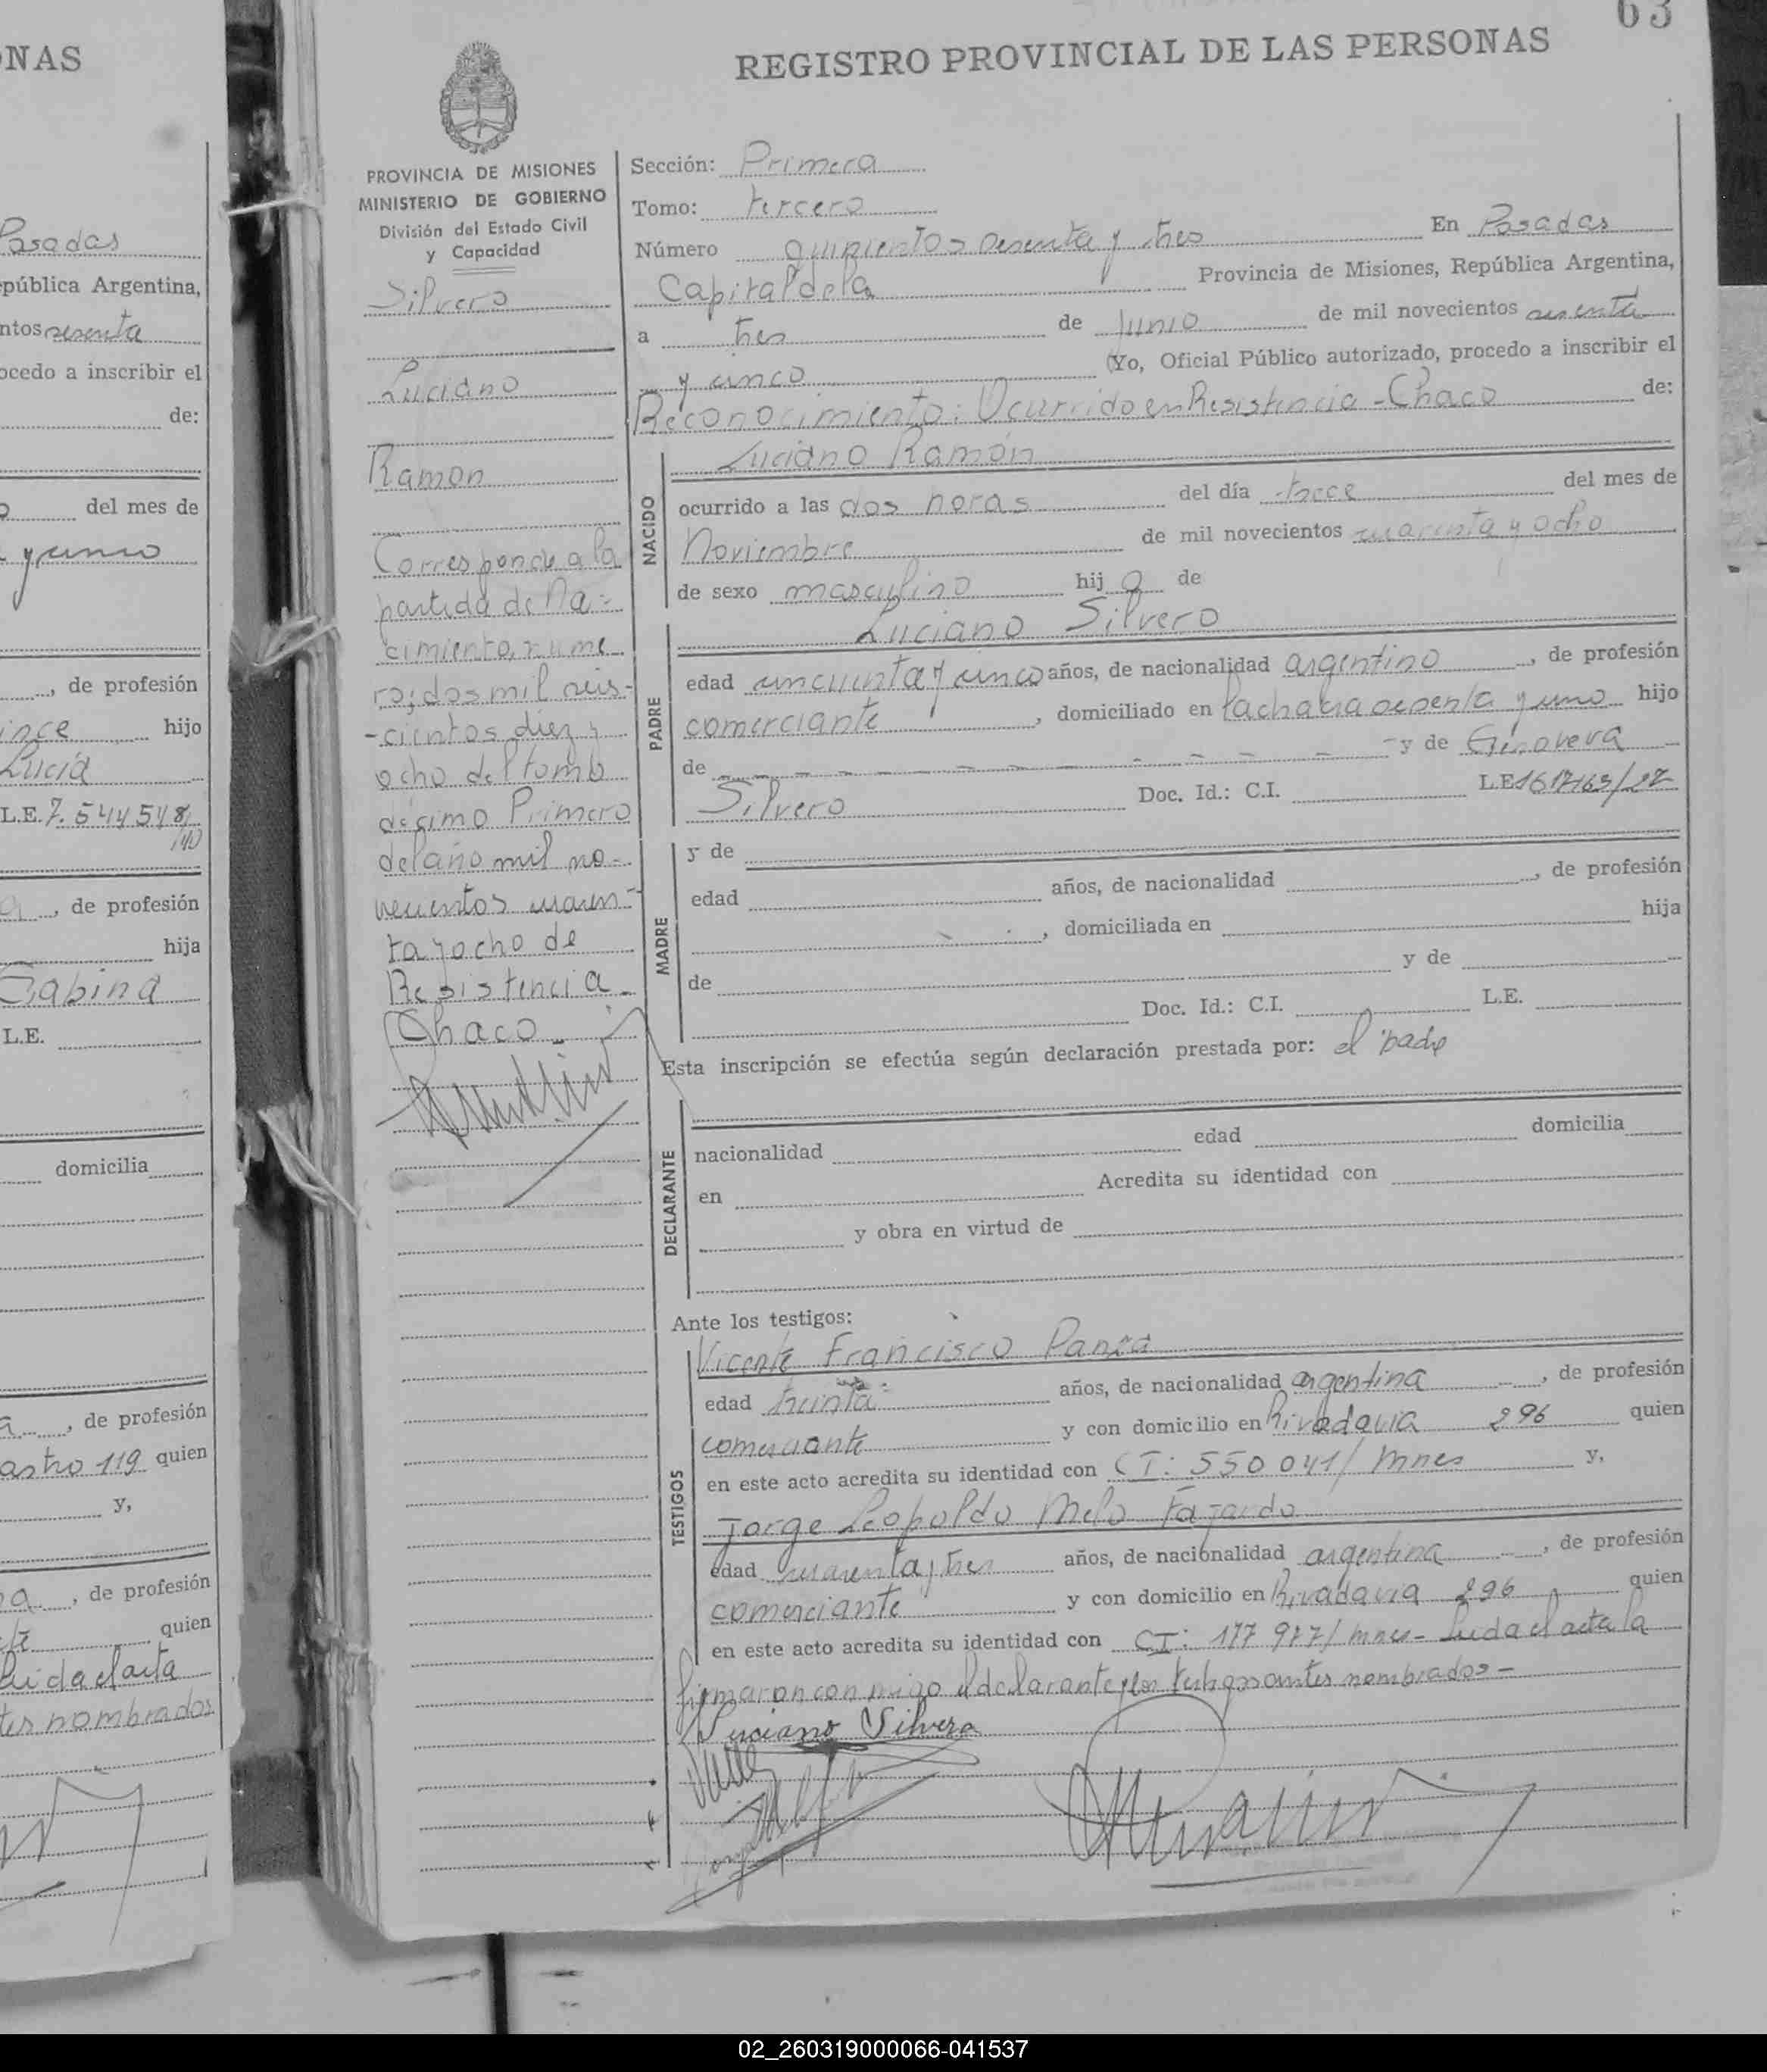 ONAS
Posadas
epública Argentina,
ntos sesenta
ocedo a inscribir el
de:
del mes de
y cinco
, de profesión
ince hijo
Lucía
L.E. 7.544548
, de profesión
hija
Gabina
L.E.
domicilia
a , de profesión
astro 119 quien
y,
na , de profesión
quien
Leida el acta
tes nombrados
63
REGISTRO PROVINCIAL DE LAS PERSONAS
PROVINCIA DE MISIONES
MINISTERIO DE GOBIERNO
División del Estado Civil
y Capacidad
Silvero
Luciano
Ramon
Corresponde a la
partida de Na-
cimiento, nume
ro; dos mil seis-
-cientos diez y
ocho del tomo
décimo Primero
del año mil no-
vecientos cuaren-
ta y ocho de
Resistencia
Chaco
Sección: Primera
Tomo: tercero
Número quinientos sesenta y tres En Posadas
Capital de la Provincia de Misiones, República Argentina,
a tres de Junio de mil novecientos sesenta
y cinco (Yo, Oficial Público autorizado, procedo a inscribir el
Reconocimiento: Ocurrido en Resistencia - Chaco de:
NACIDO
Luciano Ramón
ocurrido a las dos horas del día trece del mes de
Noviembre de mil novecientos cuarenta y ocho
de sexo masculino hijo de
PADRE
Luciano Silvero
edad cincuenta y cinco años, de nacionalidad argentino, de profesión
comerciante, domiciliado en la chacra sesenta y uno hijo
de - - - - - - - - - - - y de Genoveva
Silvero Doc. Id.: C.I. L.E.
MADRE
y de
edad años, de nacionalidad , de profesión
, domiciliada en hija
de y de
Doc. Id.: C.I. L.E.
Esta inscripción se efectúa según declaración prestada por: el padre
DECLARANTE
nacionalidad edad domicilia
en Acredita su identidad con
y obra en virtud de
Ante los testigos:
TESTIGOS
Vicente Francisco Panza
edad treinta años, de nacionalidad argentina, de profesión
comerciante y con domicilio en Rivadavia 296 quien
en este acto acredita su identidad con CI: 550 041/ Mnes y,
Jorge Leopoldo Melo Fajardo
edad cuarenta y tres años, de nacionalidad argentina, de profesión
comerciante y con domicilio en Rivadavia 296 quien
en este acto acredita su identidad con CI: 177 977/ mnes- Leida el acta la
firmaron con migo el declarante y los testigos antes nombrados-
Luciano Silvero
02_260319000066-041537